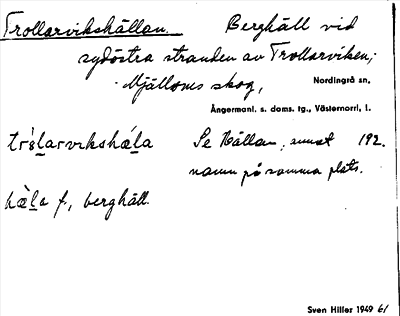 Trollarvikshällan. Berghäll vid
sydöstra stranden av Trollarviken;
Mjälloms skog, Nordingrå sn,
Ångermanl. s. doms. tg., Västernorrl. l.
Se Hällan, annat 192.
namn på samma plats.
f., berghäll.
Sven Hiller 1949 61